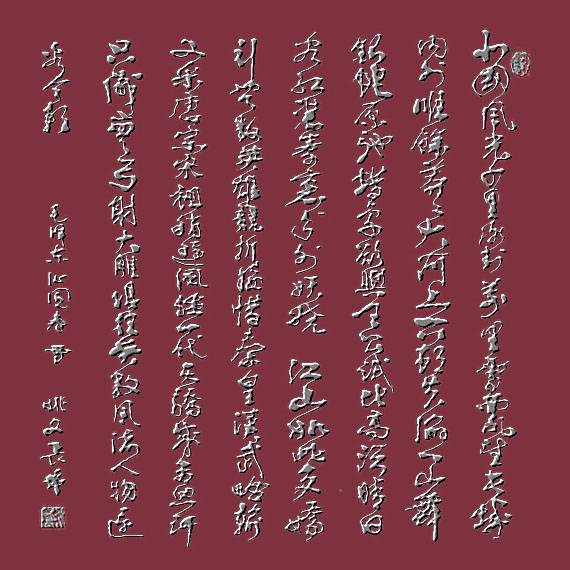 北國風光千里冰封萬里雪飄望长城
内外惟餘莽莽大河上下頓失滔滔山舞
銀蛇原馳蜡象欲與天公试比高须晴日
看红装素裹分外妖娆 江山如此多嬌
引無數英雄競折腰惜秦皇漢武略输
文采唐宗宋祖稍逊風骚一代天驕成吉思汗
只識彎弓射大雕俱往矣數風流人物還
看今朝
毛泽东沁園春雪 姚文